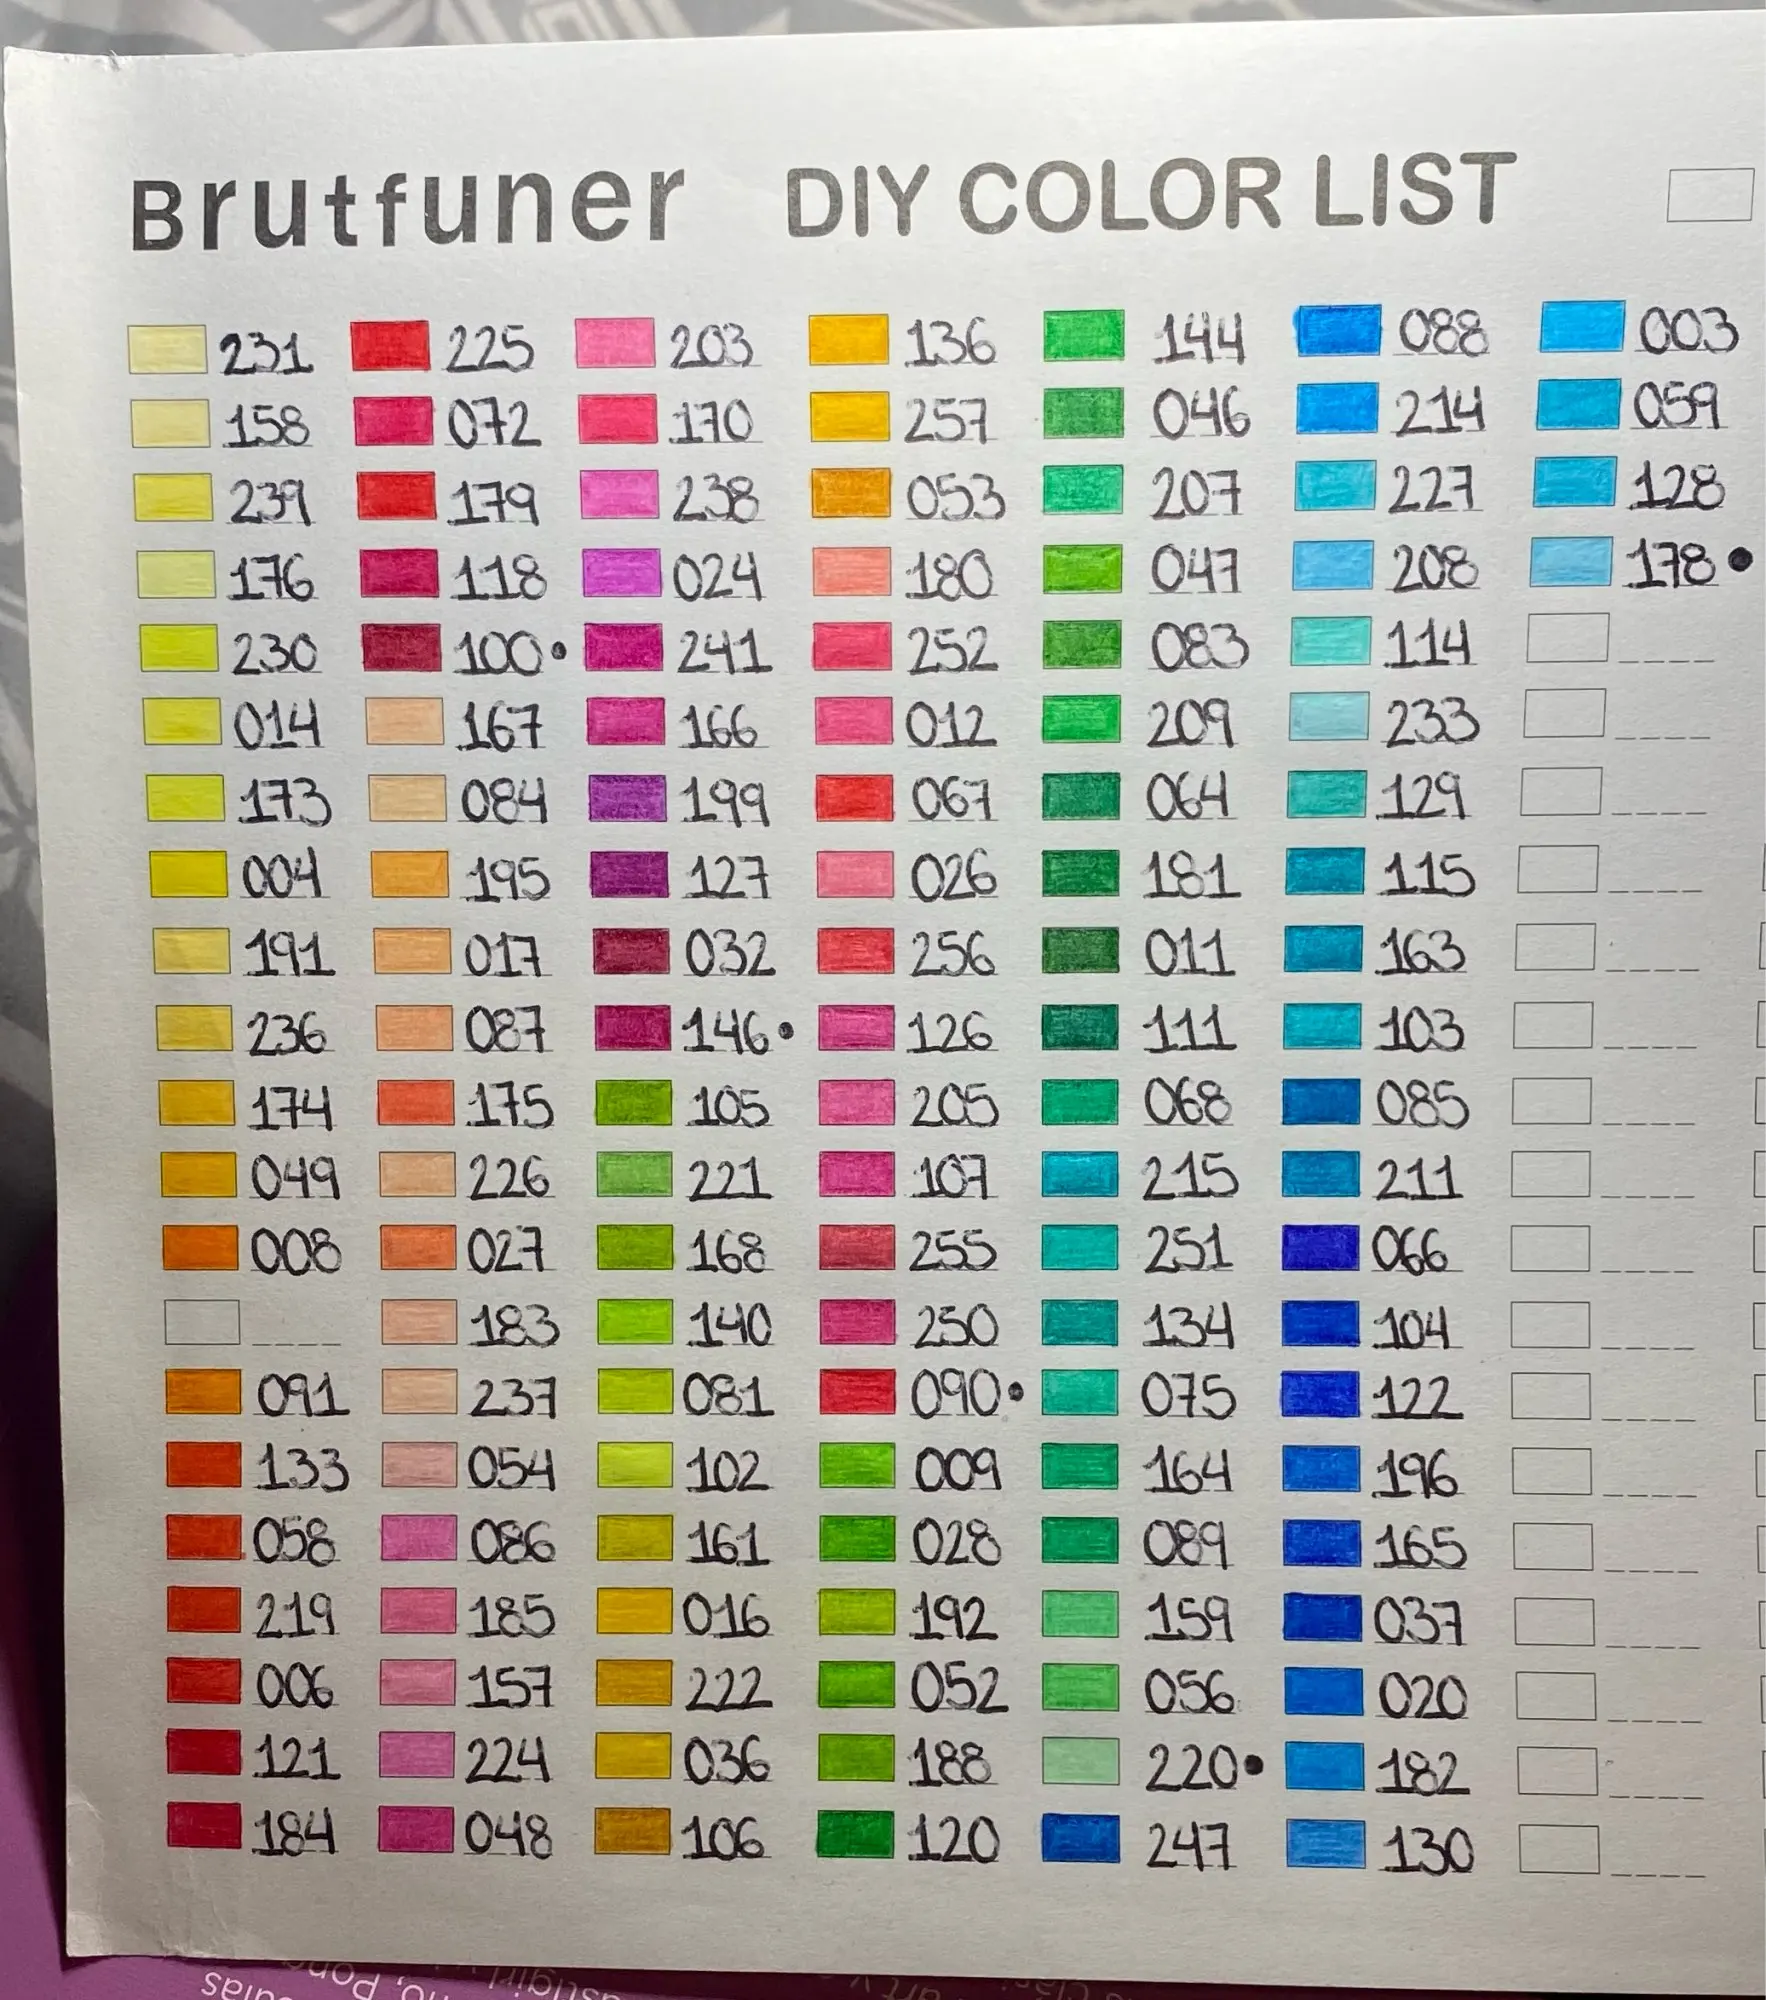 Brutfuner DIY COLOR LIST
231 225 203 136 144 088 003
158 072 170 257 046 214 059
239 179 238 053 207 227 128
176 118 024 180 047 208 178
230 100 241 252 083 114
014 167 166 012 209 233
173 084 199 067 064 129
004 195 127 026 181 115
191 017 032 256 011 163
236 087 146 126 111 103
174 175 105 205 068 085
049 226 221 107 215 211
008 027 168 255 251 066
183 140 250 134 104
091 237 081 090 075 122
133 054 102 009 164 196
058 086 161 028 089 165
219 185 016 192 159 037
006 157 222 052 056 020
121 224 036 188 220 182
184 048 106 120 247 130